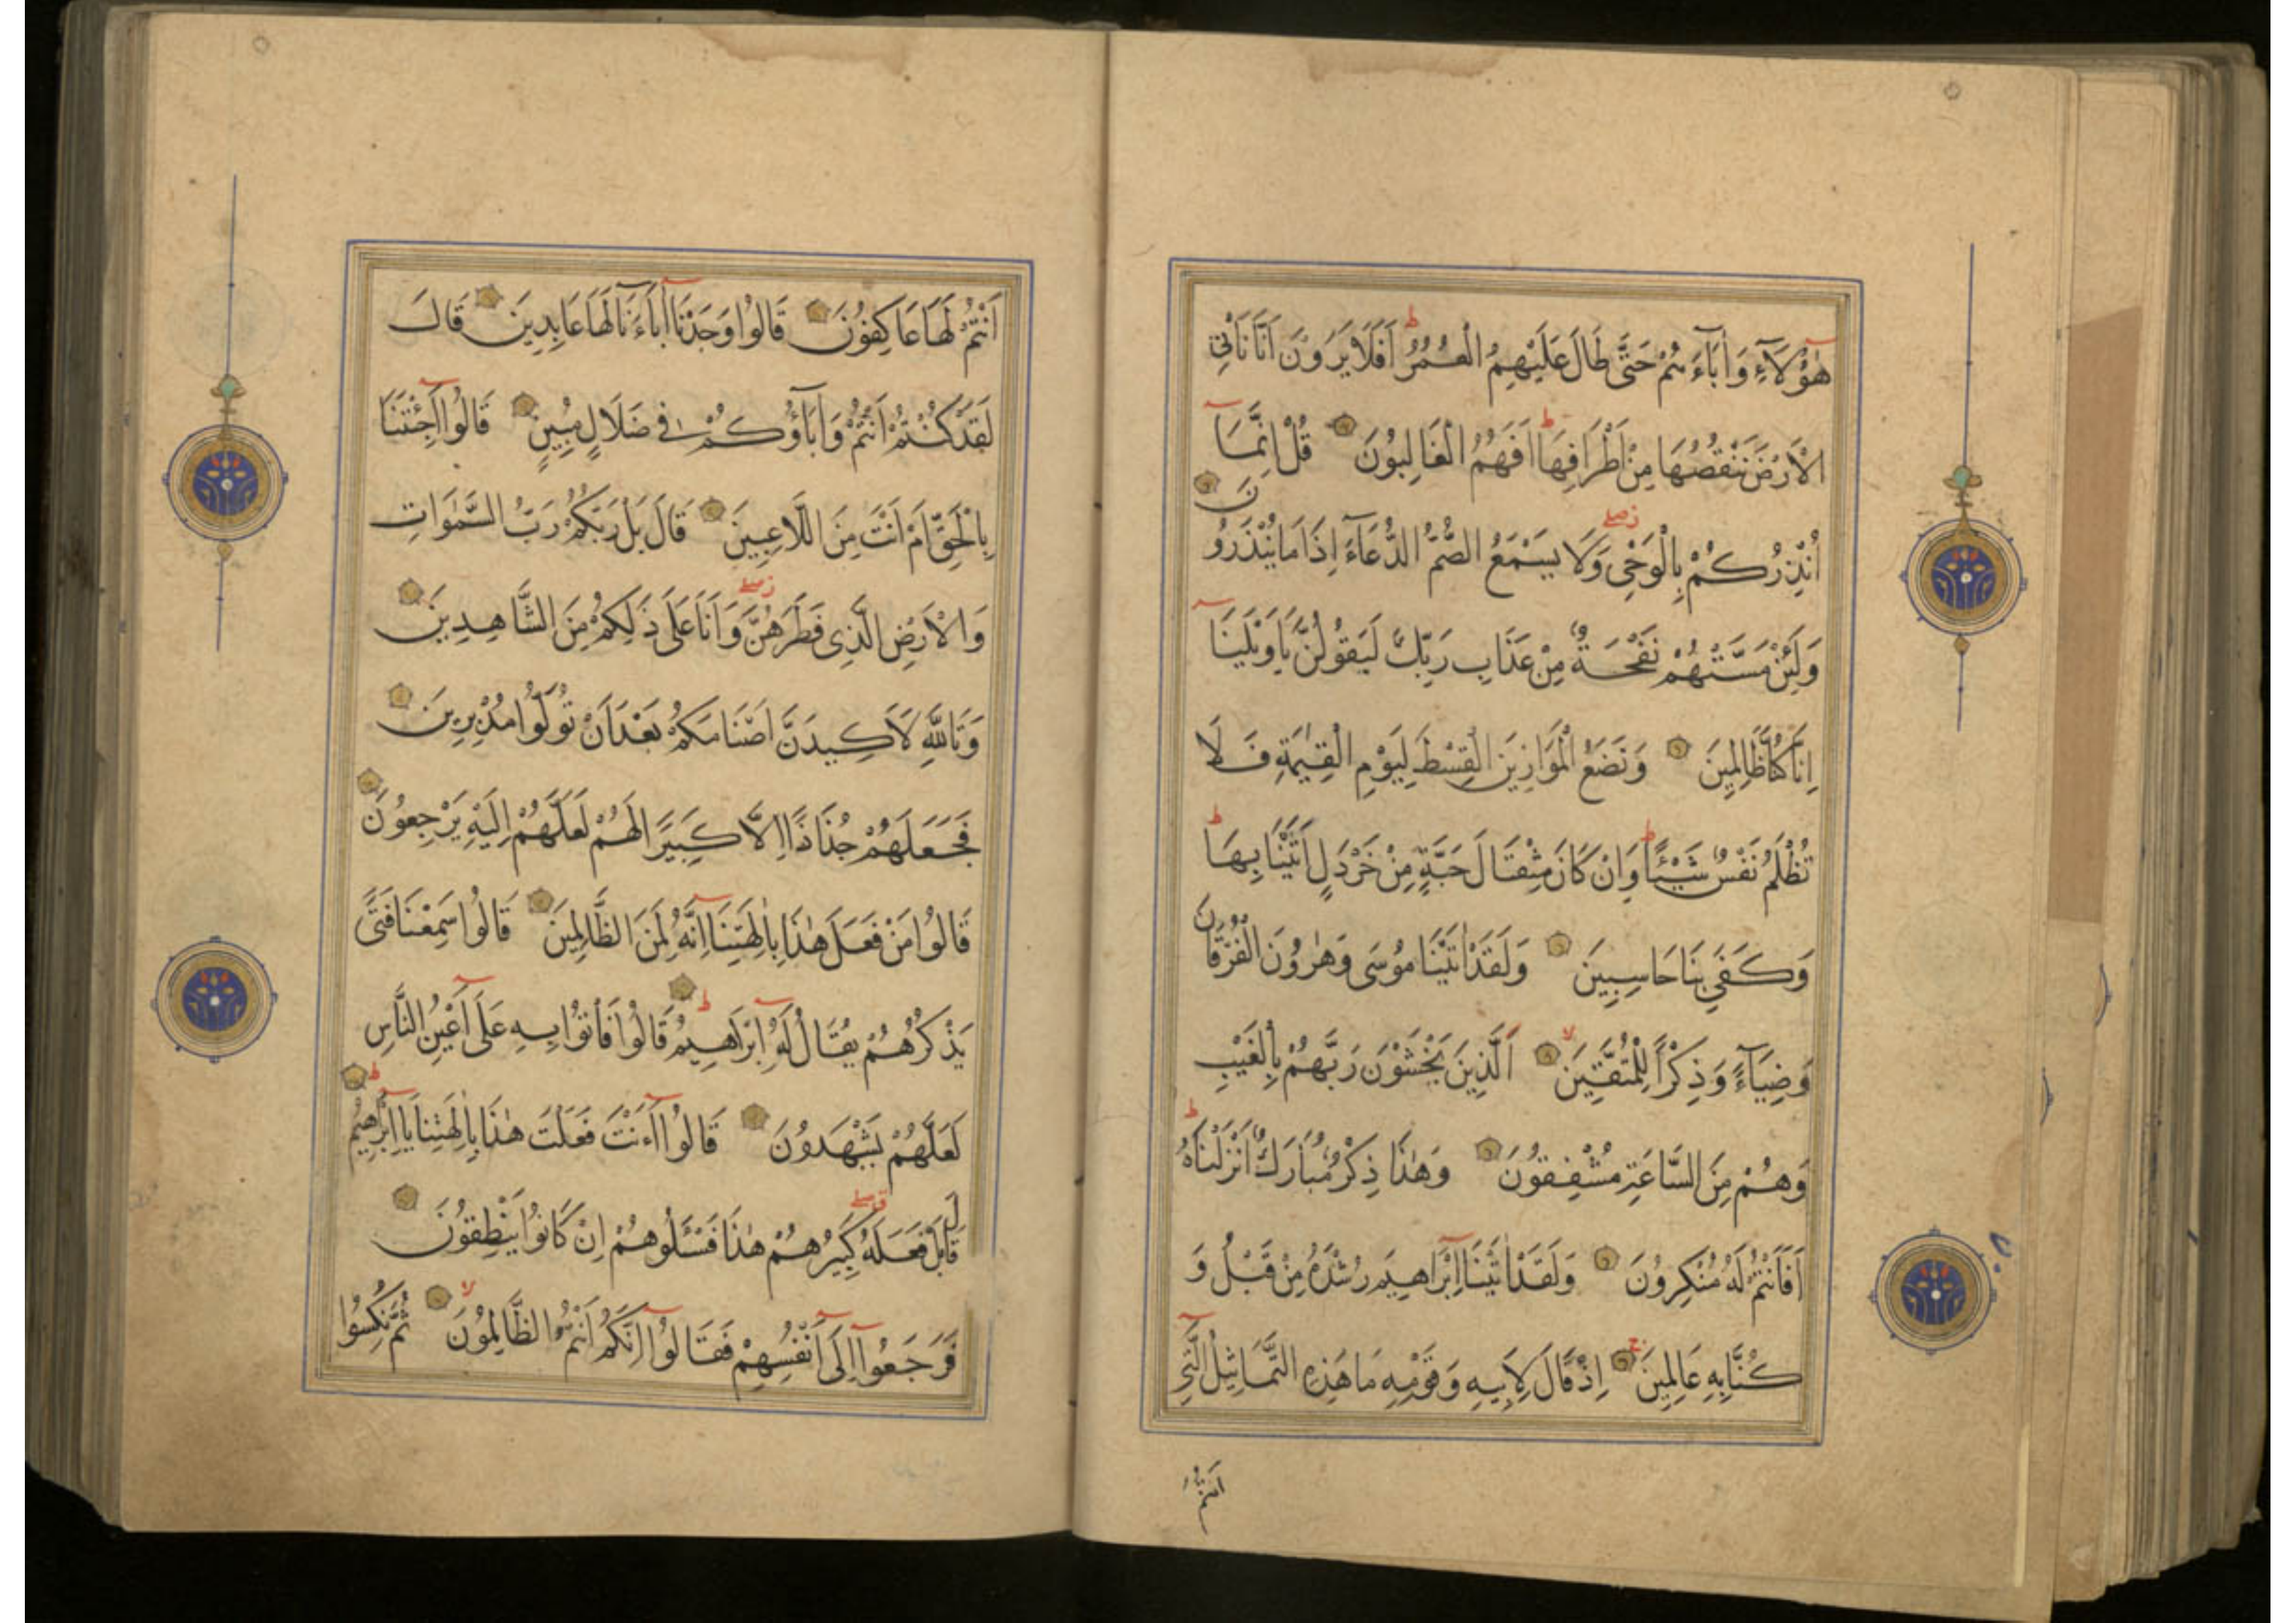 هٰٓؤُلَآءِ وَاٰبَآءَهُمْ حَتّٰى طَالَ عَلَيْهِمُ الْعُمُرُ ط اَفَلَا يَرَوْنَ اَنَّا نَاْتِي
الْاَرْضَ نَنْقُصُهَا مِنْ اَطْرَافِهَا ط اَفَهُمُ الْغَالِبُونَ قُلْ اِنَّمَٓا
اُنْذِرُكُمْ بِالْوَحْيِ زصلے وَلَا يَسْمَعُ الصُّمُّ الدُّعَآءَ اِذَا مَا يُنْذَرُونَ
وَلَئِنْ مَسَّتْهُمْ نَفْحَةٌ مِنْ عَذَابِ رَبِّكَ لَيَقُولُنَّ يَا وَيْلَنَٓا
اِنَّا كُنَّا ظَالِمِينَ وَنَضَعُ الْمَوَازِينَ الْقِسْطَ لِيَوْمِ الْقِيٰمَةِ فَلَا
تُظْلَمُ نَفْسٌ شَيْئًا ط وَاِنْ كَانَ مِثْقَالَ حَبَّةٍ مِنْ خَرْدَلٍ اَتَيْنَا بِهَا ط
وَكَفٰى بِنَا حَاسِبِينَ وَلَقَدْ اٰتَيْنَا مُوسٰى وَهٰرُونَ الْفُرْقَانَ
وَضِيَآءً وَذِكْرًا لِلْمُتَّقِينَ لا اَلَّذِينَ يَخْشَوْنَ رَبَّهُمْ بِالْغَيْبِ
وَهُمْ مِنَ السَّاعَةِ مُشْفِقُونَ وَهٰذَا ذِكْرٌ مُبَارَكٌ اَنْزَلْنَاهُ ط
اَفَاَنْتُمْ لَهُ مُنْكِرُونَ وَلَقَدْ اٰتَيْنَٓا اِبْرَاهِيمَ رُشْدَهُ مِنْ قَبْلُ وَ
كُنَّا بِهِ عَالِمِينَ ج اِذْ قَالَ لِاَبِيهِ وَقَوْمِهِ مَا هٰذِهِ التَّمَاثِيلُ الَّتِٓي
انتم
اَنْتُمْ لَهَا عَاكِفُونَ قَالُوا وَجَدْنَٓا اٰبَآءَنَا لَهَا عَابِدِينَ قَالَ
لَقَدْ كُنْتُمْ اَنْتُمْ وَاٰبَآؤُكُمْ فِي ضَلَالٍ مُبِينٍ قَالُٓوا اَجِئْتَنَا
بِالْحَقِّ اَمْ اَنْتَ مِنَ اللَّاعِبِينَ قَالَ بَلْ رَبُّكُمْ رَبُّ السَّمٰوَاتِ
وَالْاَرْضِ الَّذِي فَطَرَهُنَّ زصلے وَاَنَا عَلٰى ذٰلِكُمْ مِنَ الشَّاهِدِينَ
وَتَاللّٰهِ لَاَكِيدَنَّ اَصْنَامَكُمْ بَعْدَ اَنْ تُوَلُّوا مُدْبِرِينَ
فَجَعَلَهُمْ جُذَاذًا اِلَّا كَبِيرًا لَهُمْ لَعَلَّهُمْ اِلَيْهِ يَرْجِعُونَ
قَالُوا مَنْ فَعَلَ هٰذَا بِاٰلِهَتِنَٓا اِنَّهُ لَمِنَ الظَّالِمِينَ قَالُوا سَمِعْنَا فَتًى
يَذْكُرُهُمْ يُقَالُ لَهُٓ اِبْرَاهِيمُ ط قَالُوا فَاْتُوا بِهِ عَلٰٓى اَعْيُنِ النَّاسِ
لَعَلَّهُمْ يَشْهَدُونَ قَالُٓوا ءَاَنْتَ فَعَلْتَ هٰذَا بِاٰلِهَتِنَا يَٓا اِبْرٰهِيمُ ط
قَالَ بَلْ فَعَلَهُ قصلے كَبِيرُهُمْ هٰذَا فَسْـَٔلُوهُمْ اِنْ كَانُوا يَنْطِقُونَ
فَرَجَعُٓوا اِلٰٓى اَنْفُسِهِمْ فَقَالُٓوا اِنَّكُمْ اَنْتُمُ الظَّالِمُونَ لا ثُمَّ نُكِسُوا